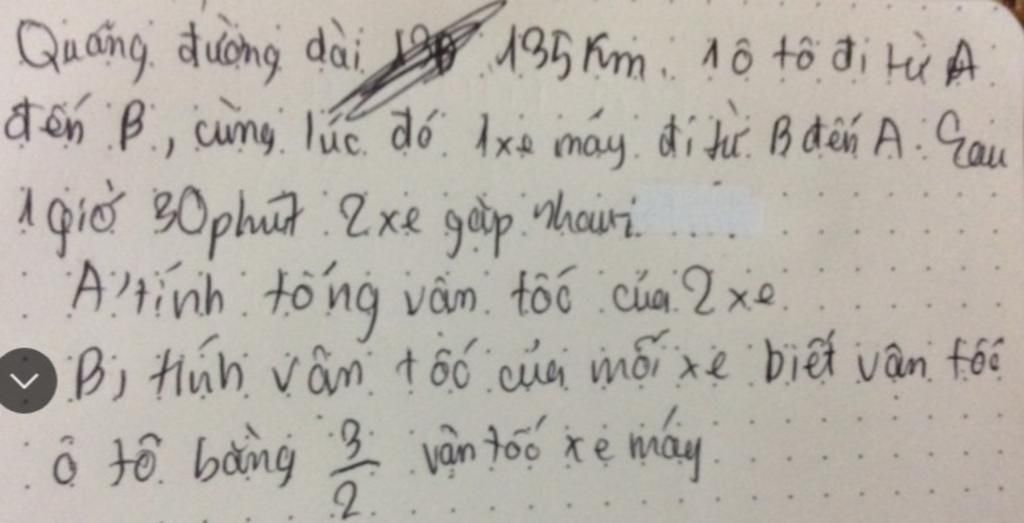 Quãng đường dài 135 Km. 1 ô tô đi từ A
đến B, cùng lúc đó 1 xe máy đi từ B đến A. Sau
1 giờ 30 phút 2 xe gặp nhau.
A, tính tổng vân tốc của 2 xe.
B, tính vân tốc của mỗi xe biết vân tốc
ô tô bằng 3/2 vân tốc xe máy.